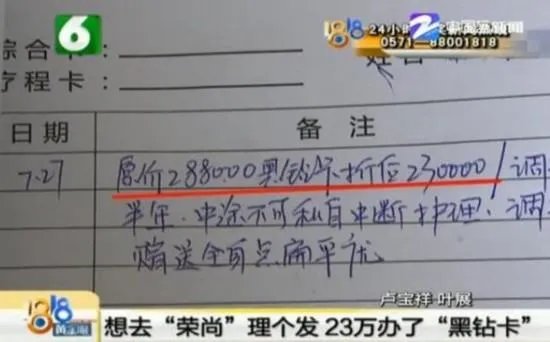 6
1818
24小时
中国蓝新闻
0571-88001818
综合卡:
疗程卡:
姓名
日期
备注
7.27
原价288000黑钻卡折后230000/调
半年.中途不可私自中断护理!调
赠送全身点痣平疣
卢宝祥 叶展
1818
黄金眼
想去“荣尚”理个发 23万办了“黑钻卡”